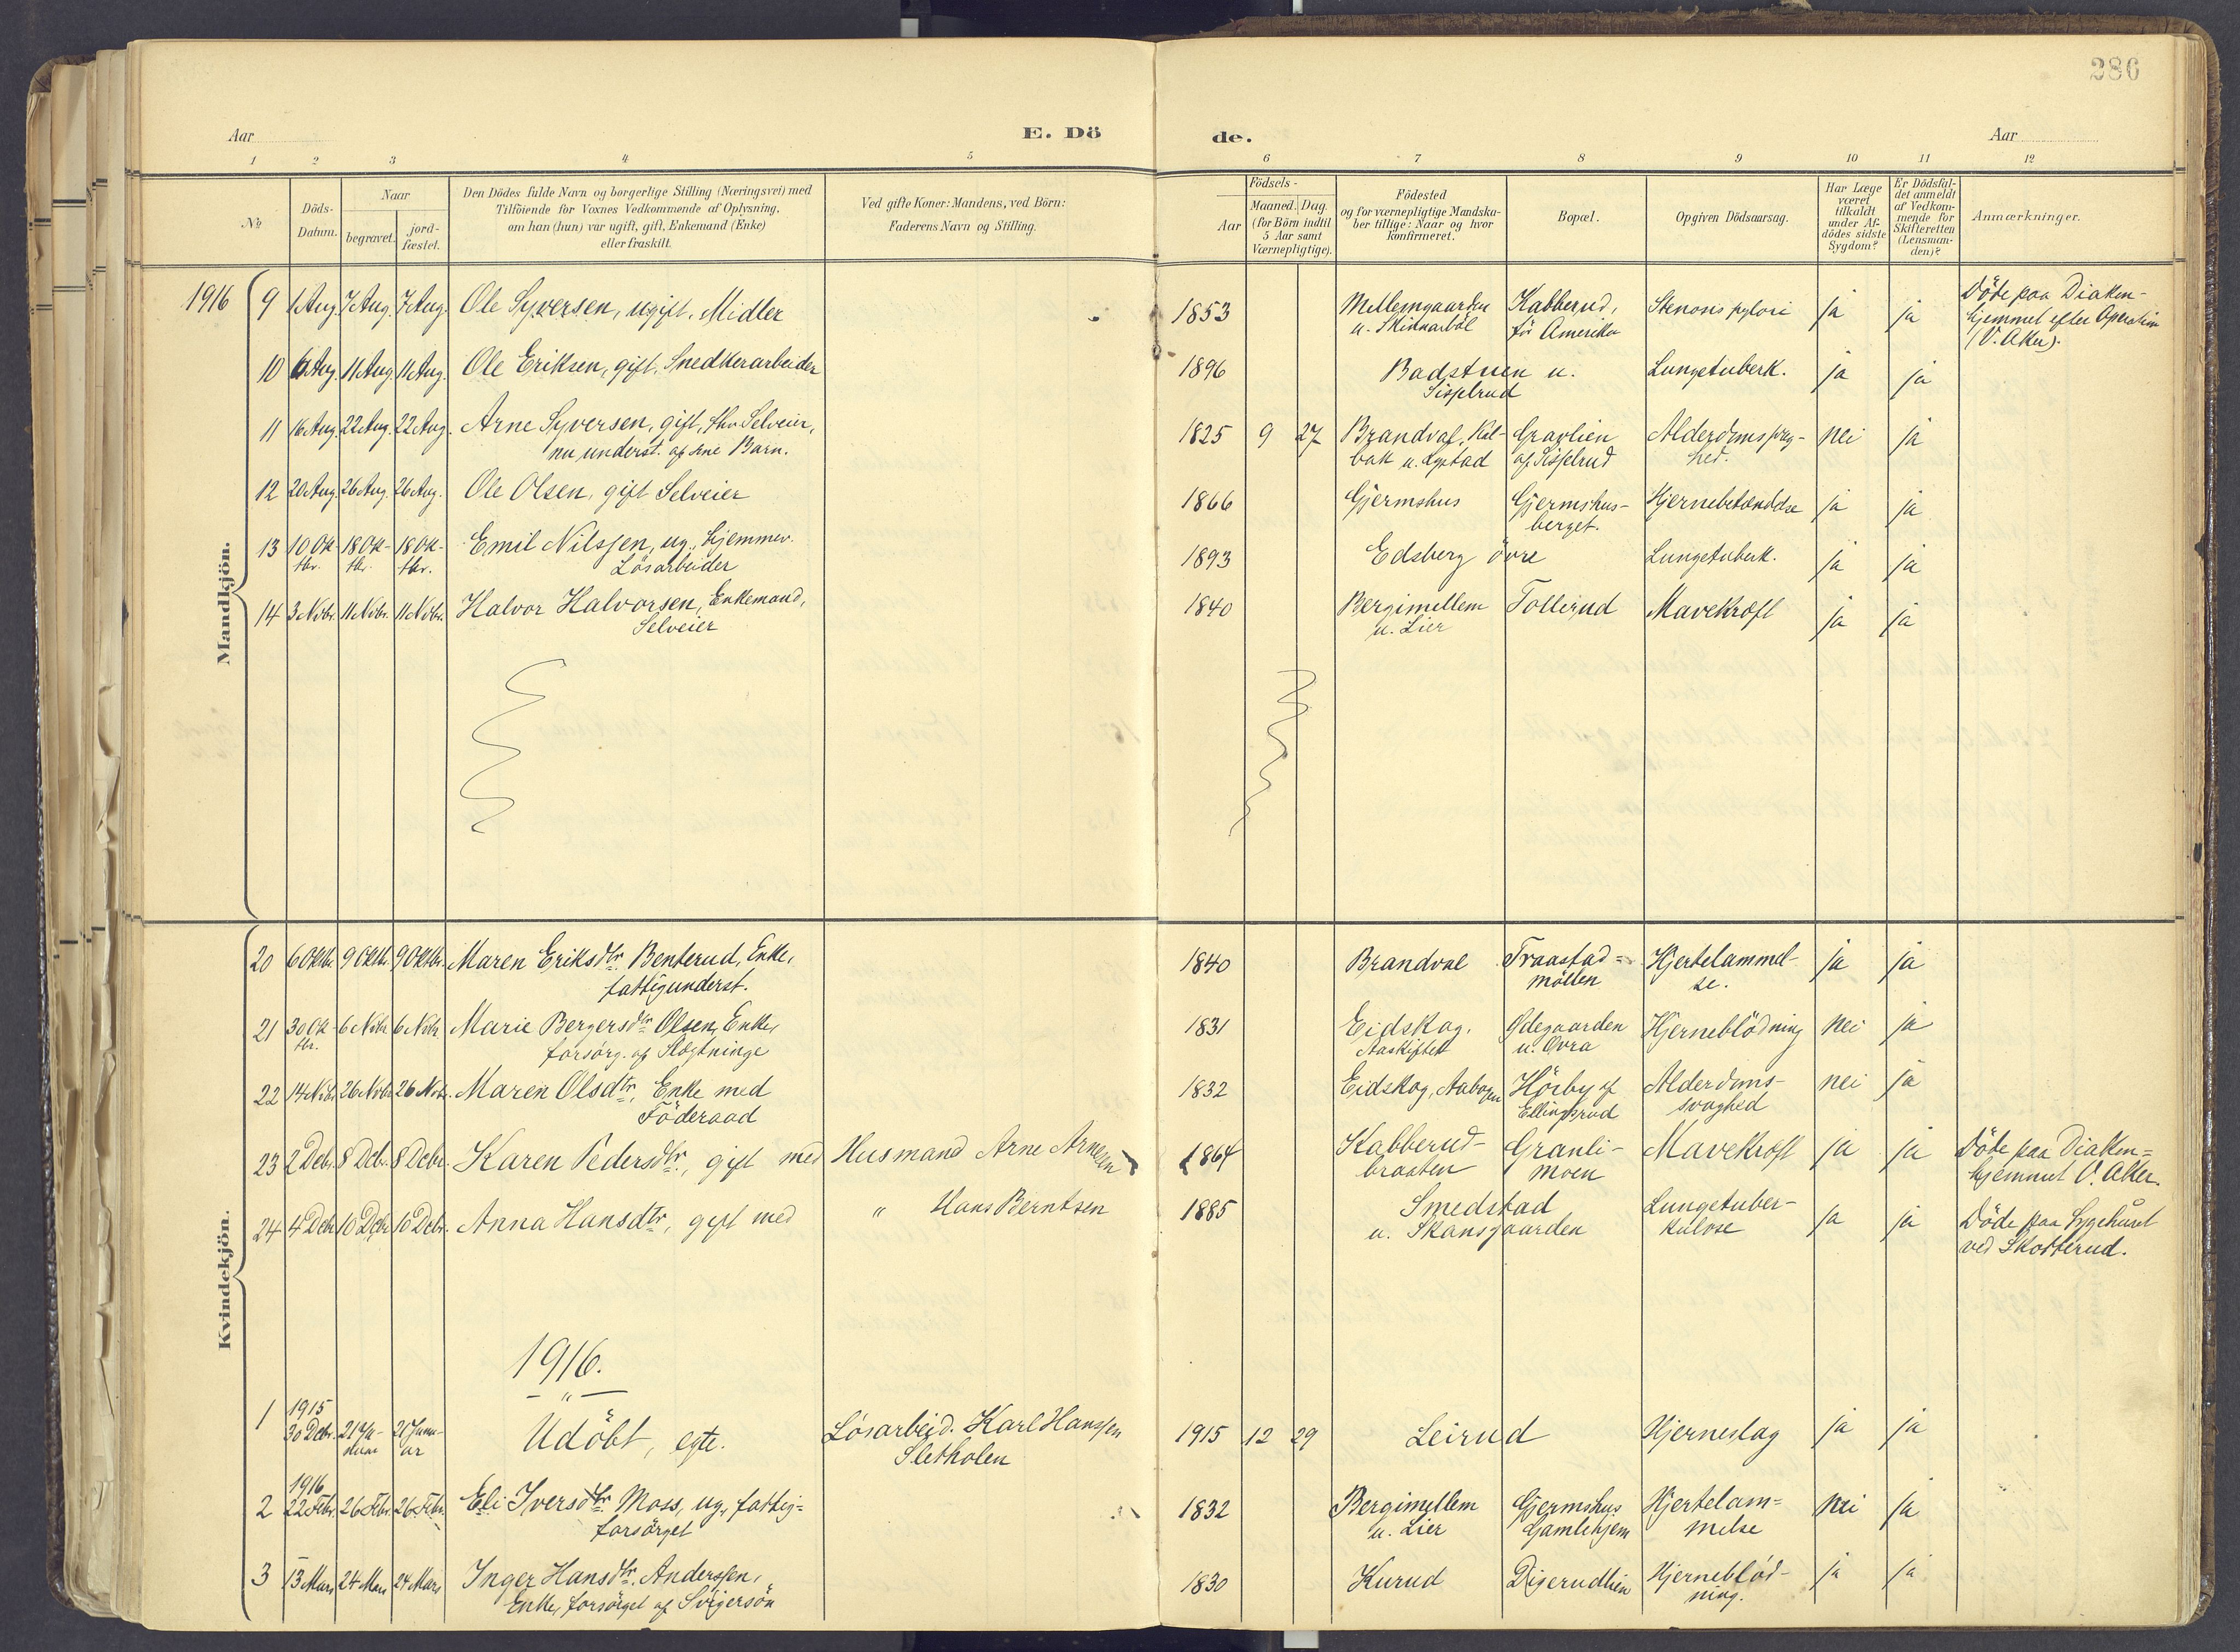 286
Aar
E. Dö
de.
Aar
1 2 3 4 5 6 7 8 9 10 11 12
№
Döds-
Datum.
Naar
begravet.
jord-
fæstet.
Den Dödes fulde Navn og borgerlige Stilling (Næringsvei) med
Tilföiende for Voxnes Vedkommende af Oplysning,
om han (hun) var ugift, gift, Enkemand (Enke)
eller fraskilt.
Ved gifte Koner: Mandens, ved Börn:
Faderens Navn og Stilling.
Födsels-
Aar
Maaned. Dag.
(for Börn indtil
5 Aar samt
Værnepligtige).
Födested
og for værnepligtige Mandska-
ber tillige: Naar og hvor
konfirmeret.
Bopæl.
Opgiven Dödsaarsag.
Har Læge
været
tilkaldt
under Af-
dödes sidste
Sygdom?
Er Dödsfal-
det anmeldt
af Vedkom-
mende for
Skifteretten
(Lensman-
den)?
Anmærkninger.
Mandkjön.
1916 9 1 Aug. 7 Aug. 7 Aug. Ole Syversen, ugift, Midler 1853 Mellemgaarden Kabberud, Stenosis pylori ja ja Döde paa Diakon-
u. Skinnarböl för Amerika hjemmet efter Operation
(V. Aker).
10 6 Aug. 11 Aug. 11 Aug. Ole Eriksen, gift, Snedkerarbeider 1896 Badstuen u. Lungetuberk. ja ja
Sisselrud
11 16 Aug. 22 Aug. 22 Aug. Arne Syversen, gift, fhv. Selveier, 1825 9 27 Brandval, Kal- Gravlien Alderdomssvag- nei ja
nu underst. af sine Barn. bak u. af Sisselrud hed.
12 20 Aug. 26 Aug. 26 Aug. Ole Olsen, gift Selveier 1866 Gjermshus Gjermshus- Hjernebetændelse ja ja
berget.
13 10 Ok- 18 Ok- 18 Ok- Emil Nilssen, ug., hjemmev. 1893 Edsberg övre Lungetuberk. ja ja
tbr. tbr. tbr. Lösarbeider
14 3 Novbr. 11 Novbr. 11 Novbr. Halvor Halvorsen, Enkemand, 1840 Bergimellem Tollerud Mavekræft ja ja
Selveier u. Lier
Kvindekjön.
20 6 Oktb. 9 Oktb. 9 Oktbr. Maren Eriksdtr. Benterud, Enke, 1840 Brandval Traastad= Hjertelammel- ja ja
fattigunderst. möllen se.
21 30 Ok- 6 Novbr. 6 Novbr. Marie Bergersdtr. Olsen, Enke, 1831 Eidskog, Ødegaarden Hjerneblödning nei ja
tbr. forsörg. af Slægtninge Aaskiftet u. Øvra
22 14 Novbr. 26 Novbr. 26 Novbr. Maren Olsdtr., Enke med 1832 Eidskog, Aabogen Hörby af Alderdoms- nei ja
Föderaad Ellingsrud svaghed
23 2 Debr. 8 Debr. 8 Debr. Karen Pedersdtr., gift med Husmand Arne Arnesen 1864 Kabberud- Granli- Mavekræft ja ja Döde paa Diakon=
braaten moen hjemmet V. Aker.
24 4 Debr. 10 Debr. 10 Debr. Anna Hansdtr., gift med " Hans Berntsen 1885 Smedstad Lungetuber- ja ja Döde paa Sygehuset
u. Skansgaarden kulose ved Skotterud.
1916.
"
1 1915
30 Debr. 21 Ja- 21 Janu- Udöbt, egte. Lösarbeid. Karl Hanssen 1915 12 29 Leirud Hjerneslag ja ja
nuar ar Sletholen
1916
2 22 Febr. 26 Febr. 26 Febr. Eli Iversdtr. Moss, ug., fattig= 1832 Bergimellem Gjermshus Hjertelam= nei ja
forsörget u. Lier Gamlehjem melse
3 13 Mars 24 Mars 24 Mars Inger Hansdtr. Anderssen, 1830 Kurud Digerudlien Hjerneblöd- ja ja
Enke, forsörget af Svigersön ning.